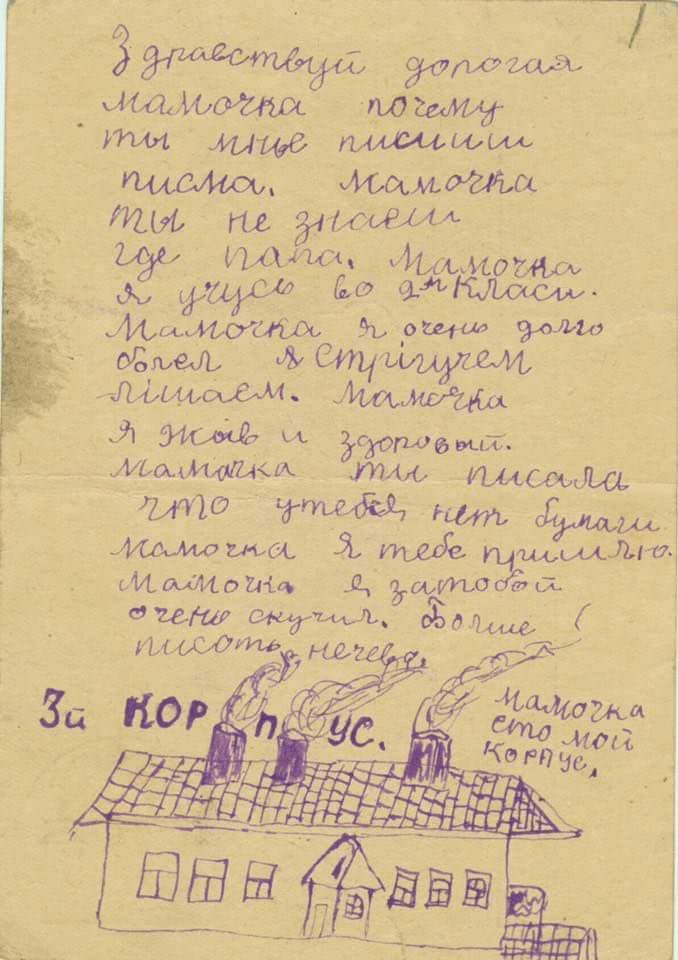 Здравствуй дорогая
мамочка почему
ты мнье писиш
писма. Мамочка
ты не знаеш
где папа. Мамочка
я учусь во 2м класи.
Мамочка я очень долго
болел я Стрігучем
лішаєм. Мамочка
я жив и здоровый.
Мамочка ты писала
что утебя нет бумаги
мамочка я тебе пришлю.
Мамочка я затобой
очень скучил. Болше
писоть нечево.
3й КОРПУС.
мамочка
ето мой
корпус.